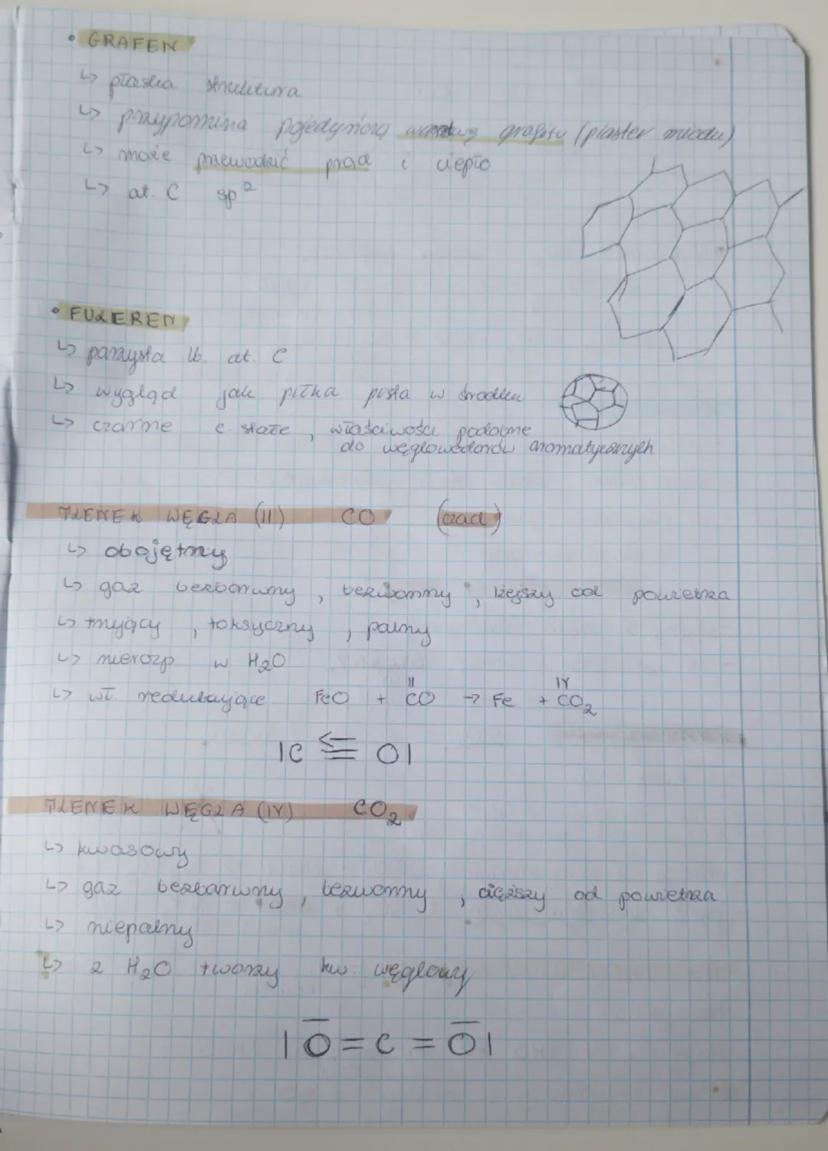 • GRAFEN
↳ płaska struktura
↳ przypomina pojedynczą warstwę grafitu (plaster miodu)
↳ może przewodzić prąd i ciepło
↳ at. C sp²
• FULEREN
↳ parzysta lb. at. C
↳ wygląd jak piłka pusta w środku
↳ czarne c. stałe, właściwości podobne
do węglowodorów aromatycznych
TLENEK WĘGLA (II) CO (czad)
↳ obojętny
↳ gaz bezbarwny, bezwonny, lżejszy od powietrza
↳ trujący, toksyczny, palny
↳ nierozp w H₂O
↳ wł. redukujące FeO + C^{II}O → Fe + C^{IV}O₂
|C ⇚ O|
TLENEK WĘGLA (IV) CO₂
↳ kwasowy
↳ gaz bezbarwny, bezwonny, cięższy od powietrza
↳ niepalny
↳ z H₂O tworzy kw. węglowy
|O̅ = C = O̅|